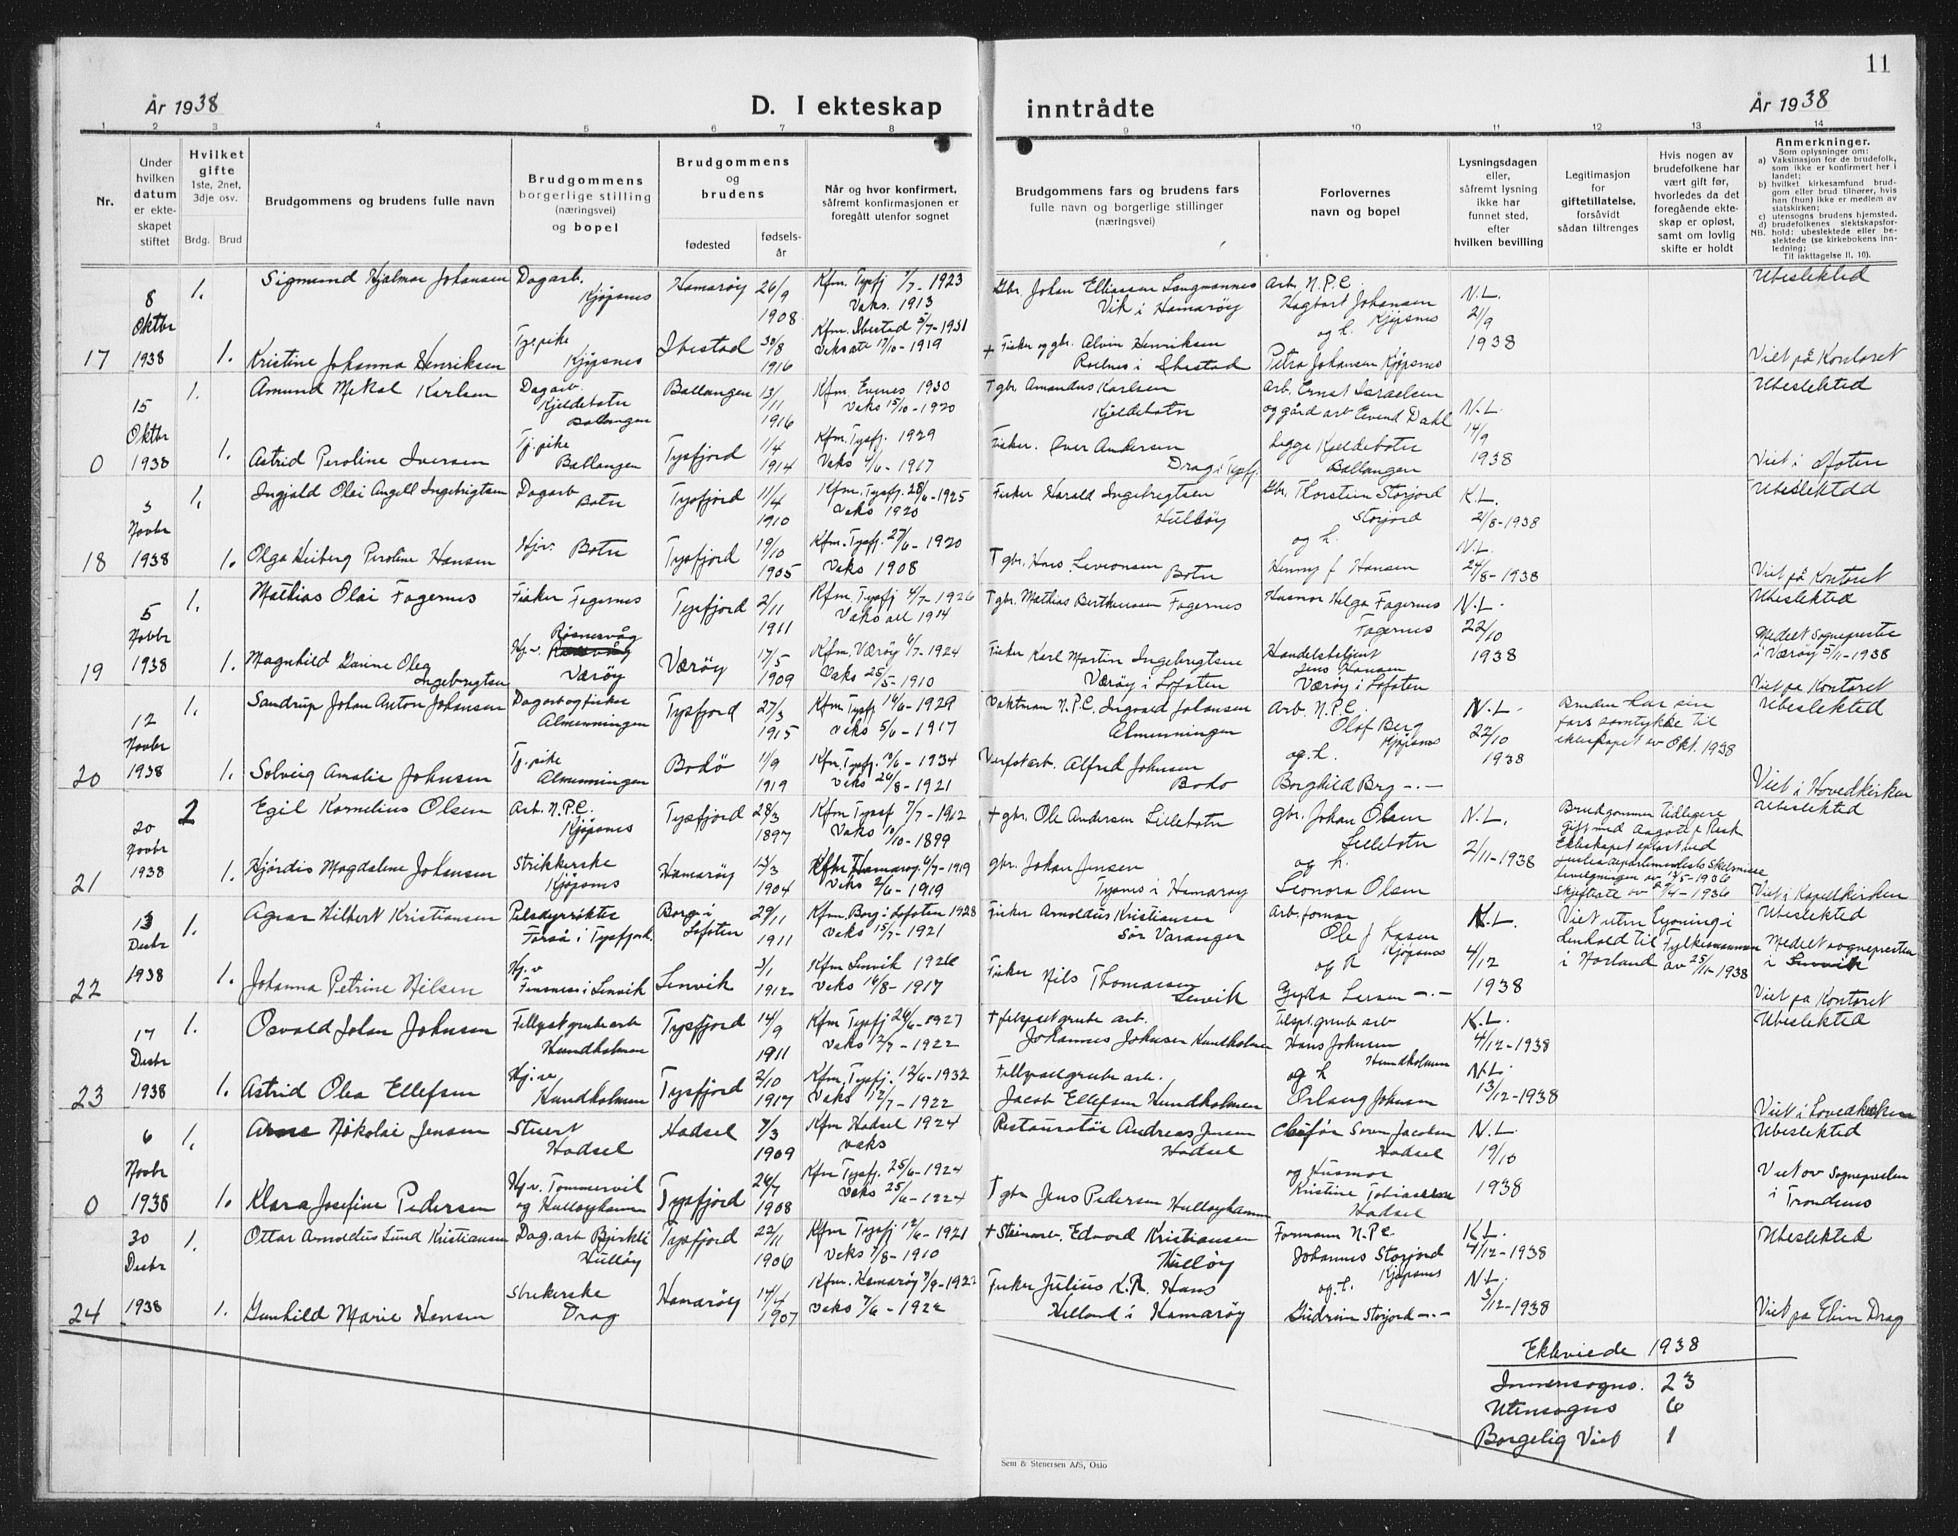 11
År 1938
D. I ekteskap
inntrådte
År 1938
1 2 3 4 5 6 7 8 9 10 11 12 13 14
Nr.
Under hvilken datum er ekteskapet stiftet
Hvilket gifte
1ste, 2net, 3dje osv.
Brdg. Brud
Brudgommens og brudens fulle navn
Brudgommens borgerlige stilling (næringsvei) og bopel
Brudgommens og brudens
fødested
fødsels-år
Når og hvor konfirmert, såfremt konfirmasjonen er foregått utenfor sognet
Brudgommens fars og brudens fars
fulle navn og borgerlige stillinger
(næringsvei)
Forlovernes navn og bopel
Lysningsdagen eller, såfremt lysning ikke har funnet sted, efter hvilken bevilling
Legitimasjon for giftetillatelse, forsåvidt sådan tiltrenges
Hvis nogen av brudefolkene har vært gift før, hvorledes da det foregående ekteskap er opløst, samt om lovlig skifte er holdt
Anmerkninger.
Som oplysninger om:
a) Vaksinasjon for de brudefolk, som ikke er konfirmert her i landet;
b) hvilket kirkesamfund brudgom eller brud tilhører, hvis han (hun) ikke er medlem av statskirken;
c) utensogns brudens hjemsted.
d) brudefolkenes slektskapsforhold: ubeslektede eller beslektede (se kirkebokens innledning;
NB.
Til iakttagelse II. 10).
17
8 Oktbr 1938
1. Sigmund Hjalmar Johansen
Dagarb. Kjøpsnes
Hamarøy
26/9 1908
Kfm. Tysfj. 1/7-1923
Vaks. 1913
Gbr. Johan Elliassen Langmannes
Vik i Hamarøy
Arb. N.P.C.
Hagbart Johansen
og h. Kjøpsnes
N.L. 21/9 1938
Ubeslekted
1. Kristine Johanna Henriksen
Tj.pike Kjøpsnes
Ibestad
30/8 1916
Kfm. Ibestad 5/7-1931
Vaks att 17/10-1919
+ Fisker og gbr. Alvin Henriksen
i Ibestad
Petra Johansen Kjøpsnes
Viet på Kontoret
0
15 Oktbr 1938
1. Amund Mekal Karlsen
Dagarb Kjeldebotn Ballangen
Ballangen
13/11 1916
Kfm. Evenes 1930
Vaks 15/10-1920
+ gbr. Amandus Karlsen
Kjeldebotn
Arb. Ernst Israelsen
og gård arb Eivend Dahl
N.L. 14/9 1938
Ubeslekted
1. Astrid Peroline Iversen
Tj.pike Ballangen
Tysfjord
1/4 1914
Kfm. Tysfj. 1929
Vaks 4/6-1917
Fisker. Over Andersen
Drag i Tysfj.
begge Kjeldebotn
Ballangen
Viet i Ofoten
18
3 Novbr 1938
1. Ingjald Olai Angell Ingebrigtsen
Dagarb Botn
Tysfjord
11/4 1910
Kfm. Tysfj. 28/6-1925
Vaks 1920
Fisker Harald Ingebrigtsen
Hulløy
Gbr. Thorstein Storjord
Storjord
og h.
K.L. 21/8-1938
Ubeslekted
1. Olga Heiberg Peroline Hansen
Hjv. Botn
Tysfjord
19/10 1905
Kfm. Tysfj. 27/6-1920
Vaks 1908
+ gbr. Hans Levronsen
Botn
Henny f. Hansen
N.L. 24/8-1938
Viet på Kontoret
19
5 Novbr 1938
1. Mathias Olai Fagernes
Fisker Fagernes
Tysfjord
2/11 1911
Kfm. Tysfj 4/7-1926
Vaks all 1914
+ gbr. Mathias Bertheussen Fagernes
Husmor Helga Fagernes
Fagernes
N.L. 22/10 1938
Ubeslekted
Meddelt Sogneprester
i Værøy 5/11-1938
1. Magnhild Ganine Olea Ingebrigtsen
Hj-v. Røsnesvåg Værøy
Værøy
17/5 1909
Kfm. Værøy 4/7-1924
Vaks 25/5-1910
Fisker Karl Martin Ingebrigtsen
Værøy i Lofoten
Handelsbetjent
Jens Hansen
Værøy i Lofoten
Viet på Kontoret
20
12 Novbr 1938
1. Sandrup Johan Anton Johansen
Dagarb og fisker Almenningen
Tysfjord
27/3 1915
Kfm Tysfj 14/6-1929
Vaks 5/6-1917
Vaktman N.P.C. Ingvald Johansen
Almenningen
Arb. N.P.C.
Olaf Berg
Kjøpsnes
og h.
N.L. 22/10 1938
Bruden har sin
fars samtykke til
ekteskapet av Okt. 1938
Ubeslekted
1. Solveig Amalie Johnsen
Tj.pike Almenningen
Bodø
1/9 1919
Kfm. Tysfj. 10/6-1934
Vaks 26/8-1921
Verftarb. Alfred Johnsen
Bodø
Borghild Brg -.-
Viet i Hovedkirken
21
20 Novbr 1938
2 Egil Kornelius Olsen
Arb. N.P.C. Kjøpsnes
Tysfjord
28/3 1897
Kfm Tysfj 7/7-1912
Vaks 10/10-1899
+ gbr. Ole Andersen Lillebotn
gbr. Johan Olsen
Lillebotn
og h.
N.L. 2/11-1938
Brudgommen tidligere
gift med Aagot f. Resk
Ekteskapet opløst ved
Justisdepartementets Skilsmisse
bevilgningen av 13/5-1936
Skifteatt. av 2/4-1936
Ubeslekted
1. Hjørdis Magdalene Johansen
Strikkerske Kjøpsnes
Hamarøy
13/3 1904
Kfm Hamarøy 6/7-1919
Vaks 2/6-1919
gbr. Johan Jensen
Tysnes i Hamarøy
Leonora Olsen
Viet i Kapellkirken
22
13 Desbr 1938
1. Agnar Hilbert Kristiansen
Pelsdyrrøkter Forså i Tysfjord.
Borg i Lofoten
29/11 1911
Kfm. Borg i Lofoten 1928
Vaks 15/7-1921
Fisker Arnoldus Kristiansen
Sør Varanger
Arb. forman
Ole J. Larsen
Kjøpsnes
og h
K.L. 4/12 1938
Viet uten lysning i
henhold til Fylkesmannen
i Norland av 25/11-1938
Ubeslekted
Meddelt sogneprester
i Lenvik
1. Johanna Petrine Nilsen
Hj.v Finsnes i Lenvik
Lenvik
3/1 1912
Kfm Lenvik 1926
Vaks 16/8-1917
Fisker Nils Thomassen
Lenvik
Gyda Larsen -.-
Viet på Kontoret
23
17 Desbr 1938
1. Osvald Johan Johnsen
Feltspatgrubearb Hundholmen
Tysfjord
14/9 1911
Kfm Tysfj 26/6-1927
Vaks 2/7-1922
+ feltspatgrube arb.
Johannes Johnsen Hundholmen
Feltspt.grube arb
Hans Johnsen
Hundholmen
og h
K.L. 4/12-1938
Ubeslekted
1. Astrid Olea Ellefsen
Hj.v Hundholmen
Tysfjord
2/10 1917
Kfm. Tysfj. 12/6-1932
Vaks 12/7-1922
Feltspatgrube arb.
Jacob Ellefsen Hundholmen
Erlaug Johnsen
N.L. 13/12-1938
Viet i Hovedkirken
0
6 Novbr 1938
1. Arne Nikolai Jensen
Stuert Hadsel
Hadsel
7/3 1909
Kfm Hadsel 1924
vaks
Restauratør Andreas Jensen
Hadsel
Chafør Soren Jacobsen
Hadsel
og Husmor
N.L. 19/10 1938
Ubeslekted
1. Klara Josefine Pedersen
Hj-v. Tommervik og Hulløyhamn
Tysfjord
26/7 1908
Kfm Tysfj. 25/6-1924
Vaks 25/6-1924
+ gbr Jens Pedersen Hulløyhamn
Kristine Tobiassen
Hadsel
Viet av Sogneprester
i Trondenes
24
30 Desbr 1938
1. Ottar Arnoldus Lund Kristiansen
Dag. arb Bjirkli Hulløy
Tysfjord
22/11 1906
Kfm Tysfj 12/6-1921
Vaks 7/8-1910
+ Steinarb. Edvard Kristiansen
Hulløy
Formann N.P.C.
Johannes Storjord
Kjøpsnes
og h.
K.L. 4/12-1938
Ubeslekted
1. Gunhild Marie Hansen
Strikerske Drag
Hamarøy
14/4 1907
Kfm. Hamarøy 7/9-1922
Vaks 7/6-1922
Fisker Julius K.R. Hans
Helland i Hamarøy
Gudrun Storjord -.-
N.L. 3/12-1938
Viet på Elim Drag
Ekteviede 1938
Innensogns. 23
Utensogns 6
Borgelig Viet 1
Sem & Stenersen A/S, Oslo